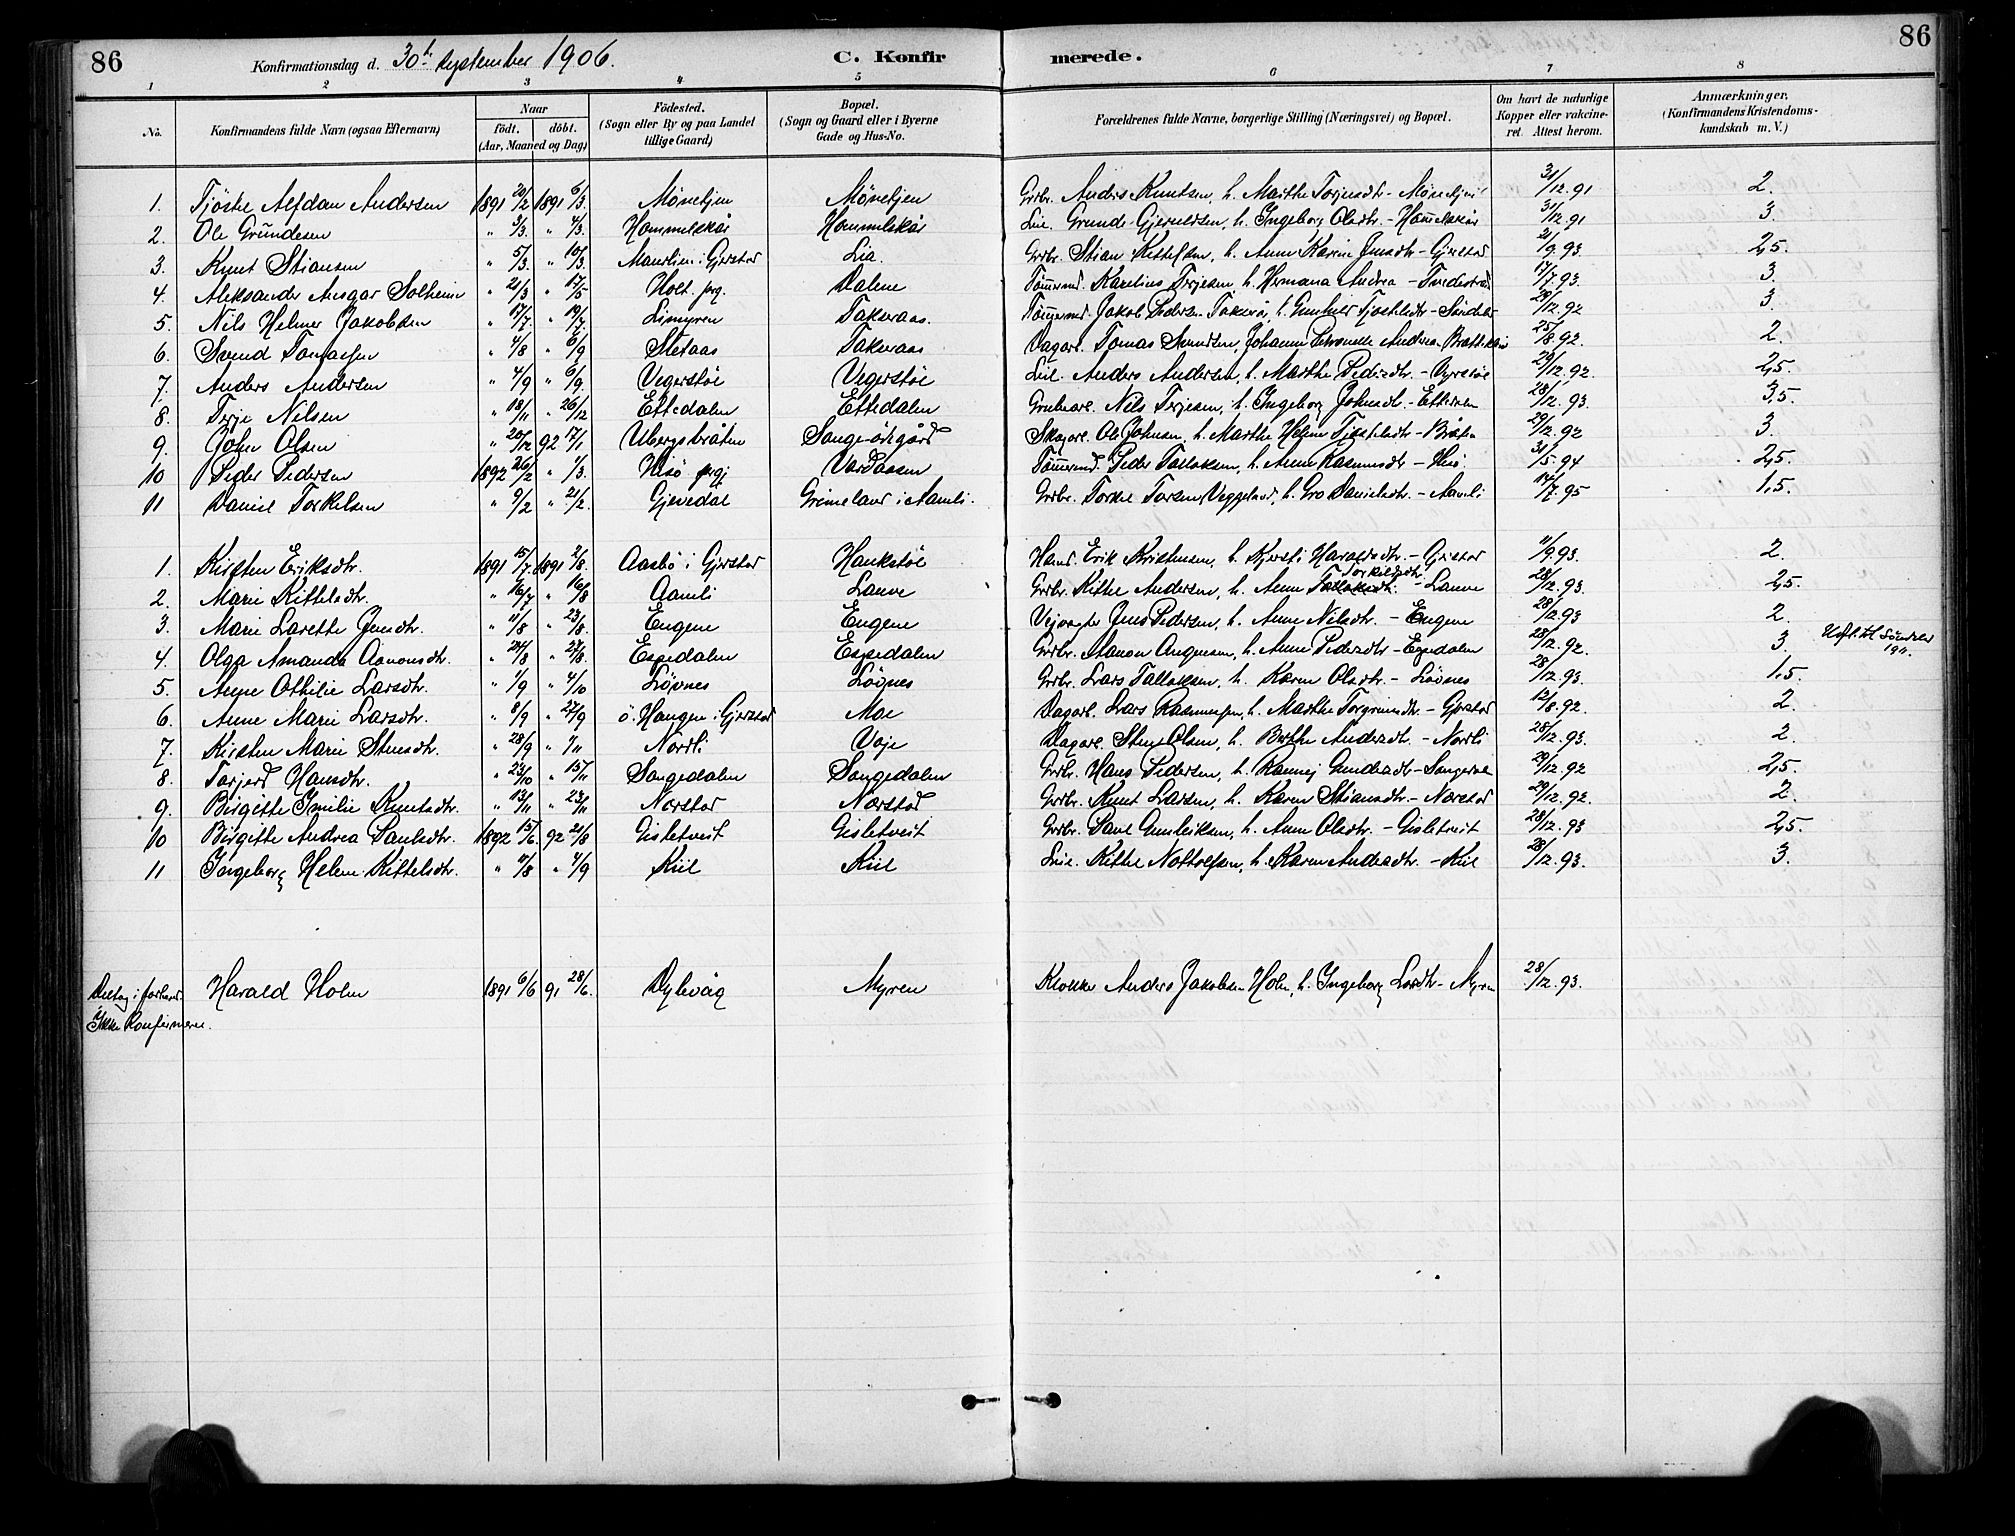 86
Konfirmationsdag d. 30te September 1906.
C. Konfirmerede.
86
1 2 3 4 5 6 7 8
No. Konfirmandens fulde Navn (ogsaa Efternavn) Naar født. døbt. (Aar, Maaned og Dag) Fødested. (Sogn eller By og paa Landet tillige Gaard) Bopæl. (Sogn og Gaard eller i Byerne Gade og Hus-No. Forældrenes fulde Navne, borgerlige Stilling (Næringsvei) og Bopæl. Om havt de naturlige Kopper eller vakcineret. Attest herom. Anmærkninger, (Konfirmandens Kristendomskundskab m. V.)
1. Tjøstel Alfdan Andersen 1891 20/2 1891 6/3. Mønehjen Mønehjen Grbr. Anders Knutsen, h. Marthe Torjusdtr - 31/12.91 2.
2. Ole Grundesen " 3/3. " 4/3. Hommelskår Hommelskår Lei. Grunde Gjeruldsen, h. Ingeborg Olsdtr - Hommelskår 31/12.91 3.
3. Knut Stiansen " 5/3. " 10/3. Maurlien i Gjerstad Lia. Grbr. Stian Kittelsen, h. Anne Karine Jensdtr - Gjerstad 21/9.93. 2,5.
4. Aleksander Ansgar Solheim " 21/3 " 17/5 Holt prg. Dalene Tømmermd. Karelius Terjesen, h. Hermana Andrea - Tvedestrand 17/7.93. 3.
5. Nils Helmer Jakobsen " 17/7. " 19/7. Limyren Takseraas. Tømmermd. Jakob Pedersen h. Gunhild Tjøstelsdtr - Søndeled 29/12.92 3.
6. Svend Tomassen " 4/8 " 6/9 Sletaas Takseraas Dagarb. Tomas Svendsen, Johanne Petronelle Andrea - 25/8.92. 2.
7. Anders Andersen " 4/9 " 6/9. Vegerstøl Vegerstøl Lei. Anders Andersen, h. Marthe Pedersdtr. - 29/12.92. 2,5.
8. Terje Nilsen " 18/11 " 26/12 Ettedalen Ettedalen Grubearb. Nils Terjesen, h. Ingeborg Johnsdtr. - Ettedalen 28/12.93. 3,5.
9. John Olsen " 20/12 92 17/1 Ubergsbråten Songe ødegård Skogarb. Ole Johnsen, h. Marthe Helene Tjøstelsdtr - Bråten 29/12.92 3.
10 Peder Pedersen 1892 26/2 " 1/3. Hisø prgj Vardaasen Tømmermd. Peder Tallaksen, h. Anne Rasmusdtr - Hisø. 31/5.94 2,5.
11 Daniel Torkelsen " 9/2 " 21/2. Gjevedal Grimeland i Aamli. Grbr. Torkel Torsen Veggeland, h. Gro Danielsdtr. - Aamli 14/7.95 1,5.
1. Kirsten Eriksdtr. 1891 15/7. 1891 2/8. Aasbø i Gjerstad Haukstøl Hamd. Erik Kristensen, h. Kjersti Haraldsdtr. - Gjerstad 11/9.93. 2.
2. Marie Kittelsdtr. " 16/7 " 16/8 Aamli Lauve Grbr. Kittel Andersen, h. Anne Tallaksdtr. Torkildsdtr - Lauve 28/12.93. 2,5.
3. Marie Larette Jensdtr. " 11/8 " 23/8. Eugene Eugene Veivogter Jens Pedersen, h. Anne Nilsdtr. - Eugene 28/12.93 2.
4. Olga Amanda Aanonsdtr. " 24/8 " 27/8. Espedalen Espedalen Grbr. Aanon Augnesen, h. Anne Pedersdtr - Espedalen 28/12.92. 3 Utfl. til Søndeled 1911.
5. Anne Othilie Larsdtr. " 1/9 " 4/10 Løvnes Løvnes Grbr. Lars Tallaksen, h. Karen Olsdtr. - Løvnes 28/12.93. 1,5.
6. Anne Marie Larsdtr. " 8/9 " 27/9 ö. Haugen i Gjerstad Moe Dagarb. Lars Rasmussen, h. Marthe Torgrimsdtr. - Gjerstad 12/8.92. 2.
7. Kirsten Marie Stensdtr. " 28/9 " 1/11 Nordli Voje Dagarb. Sten Olsen, h. Berthe Andersdtr. - Nordli 28/12.93. 2.
8. Torjerd Hansdtr. " 23/10 " 15/11 Songedalen Songedalen Grbr. Hans Pedersen, h. Rannei Gundersdtr - Songedalen 29/12.92 2,5.
9. Birgitte Emilie Knutsdtr. " 13/11 " 23/11 Norstad Norstad Grbr. Knut Larsen, h. Karen Stiansdtr. - Norstad 29/12.92. 2.
10 Birgitte Andrea Paulsdtr. 1892 15/6. 92 21/8 Gisletveit Gisletveit Grbr. Paul Gunleiksen, h. Anne Olsdtr. - Gisletveit 28/12.93 2,5.
11 Ingeborg Helene Kittelsdtr. " 11/8 " 4/9 Kiil Kiil Lei. Kittel Nottolfsen, h. Karen Andersdtr. - Kiil 28/12.93. 3.
Deltog i forbered. Harald Holm 1891 6/6 91 28/6. Dybvåg Myren Klokker Anders Jakobsen Holm, h. Ingeborg Larsdtr - Myren 28/12.93.
Ikke Konfirmeret.